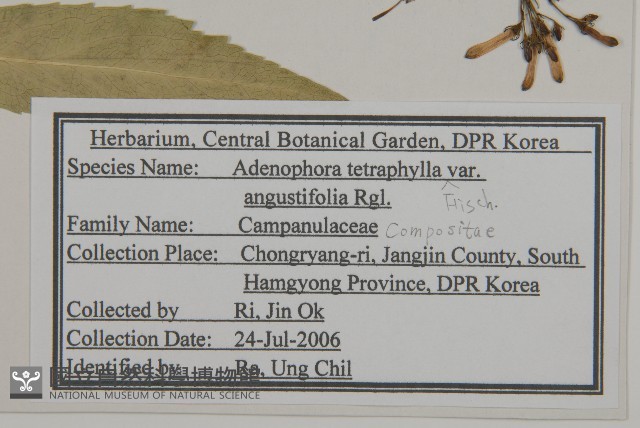 Herbarium, Central Botanical Garden, DPR Korea
Species Name: Adenophora tetraphylla var.
angustifolia Rgl. Fisch.
Family Name: Campanulaceae Compositae
Collection Place: Chongryang-ri, Jangjin County, South
Hamgyong Province, DPR Korea
Collected by Ri, Jin Ok
Collection Date: 24-Jul-2006
Identified by Ra, Ung Chil
國立自然科學博物館
NATIONAL MUSEUM OF NATURAL SCIENCE